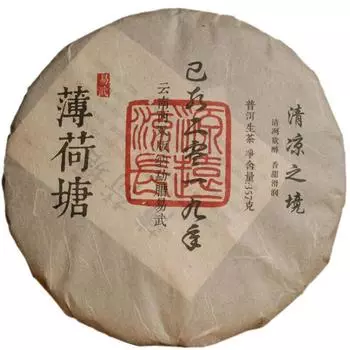 清凉之境
清冽 香甜滑润
普洱生茶 净含量357克
己亥二零一九年
云南西双版纳勐腊易武
源遠
流長
易武
薄荷塘